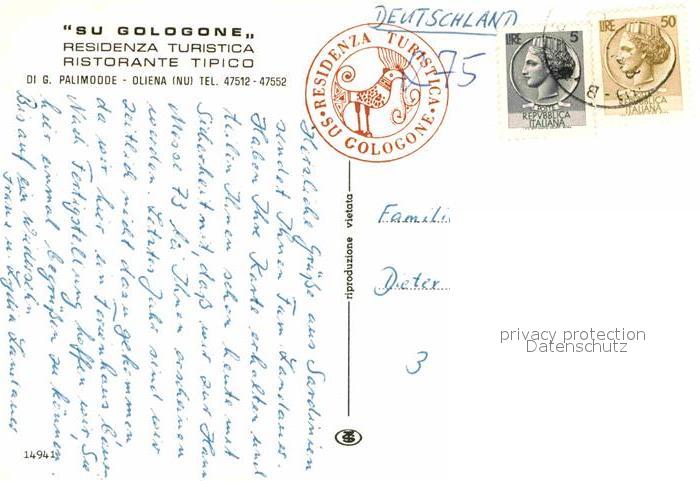 "SU GOLOGONE„
RESIDENZA TURISTICA
RISTORANTE TIPICO
DI G. PALIMODDE - OLIENA (NU) TEL. 47512 - 47552
RESIDENZA TURISTICA
SU GOLOGONE
DEUTSCHLAND
75
LIRE 5
REPVBBLICA
ITALIANA
LIRE 50
REPVBBLICA
ITALIANA
Herzliche Grüße aus Sardinien
sendet Ihnen Fam. Landauer.
Haben Ihre Karte erhalten und
teilen Ihnen schon heute mit
Sicherheit mit, daß wir zur Hann
Messe 73 bei Ihnen erscheinen
werden. Letztes Jahr sind wir
zeitlich nicht dazu gekommen
da wir hier ein Ferienhaus bauen
Nach Fertigstellung hoffen wir, Sie
hier einmal begrüßen zu können.
Bis auf ein Wiedersehn
Franz u. Lydia Landauer
riproduzione vietata
Famili
Dieter
3
privacy protection
Datenschutz
14941